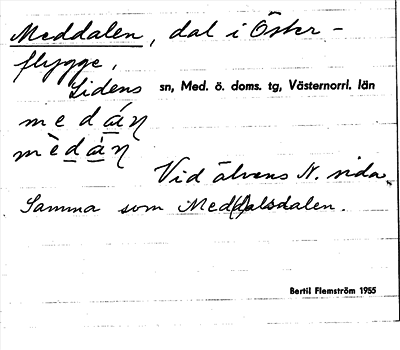 Meddalen, dal i Öster-
flygge,
Lidens sn, Med. ö. doms. tg, Västernorrl. län
medáη
mèdàη
Vid älvens N. sida.
Samma som Med(d)alsdalen.
Bertil Flemström 1955